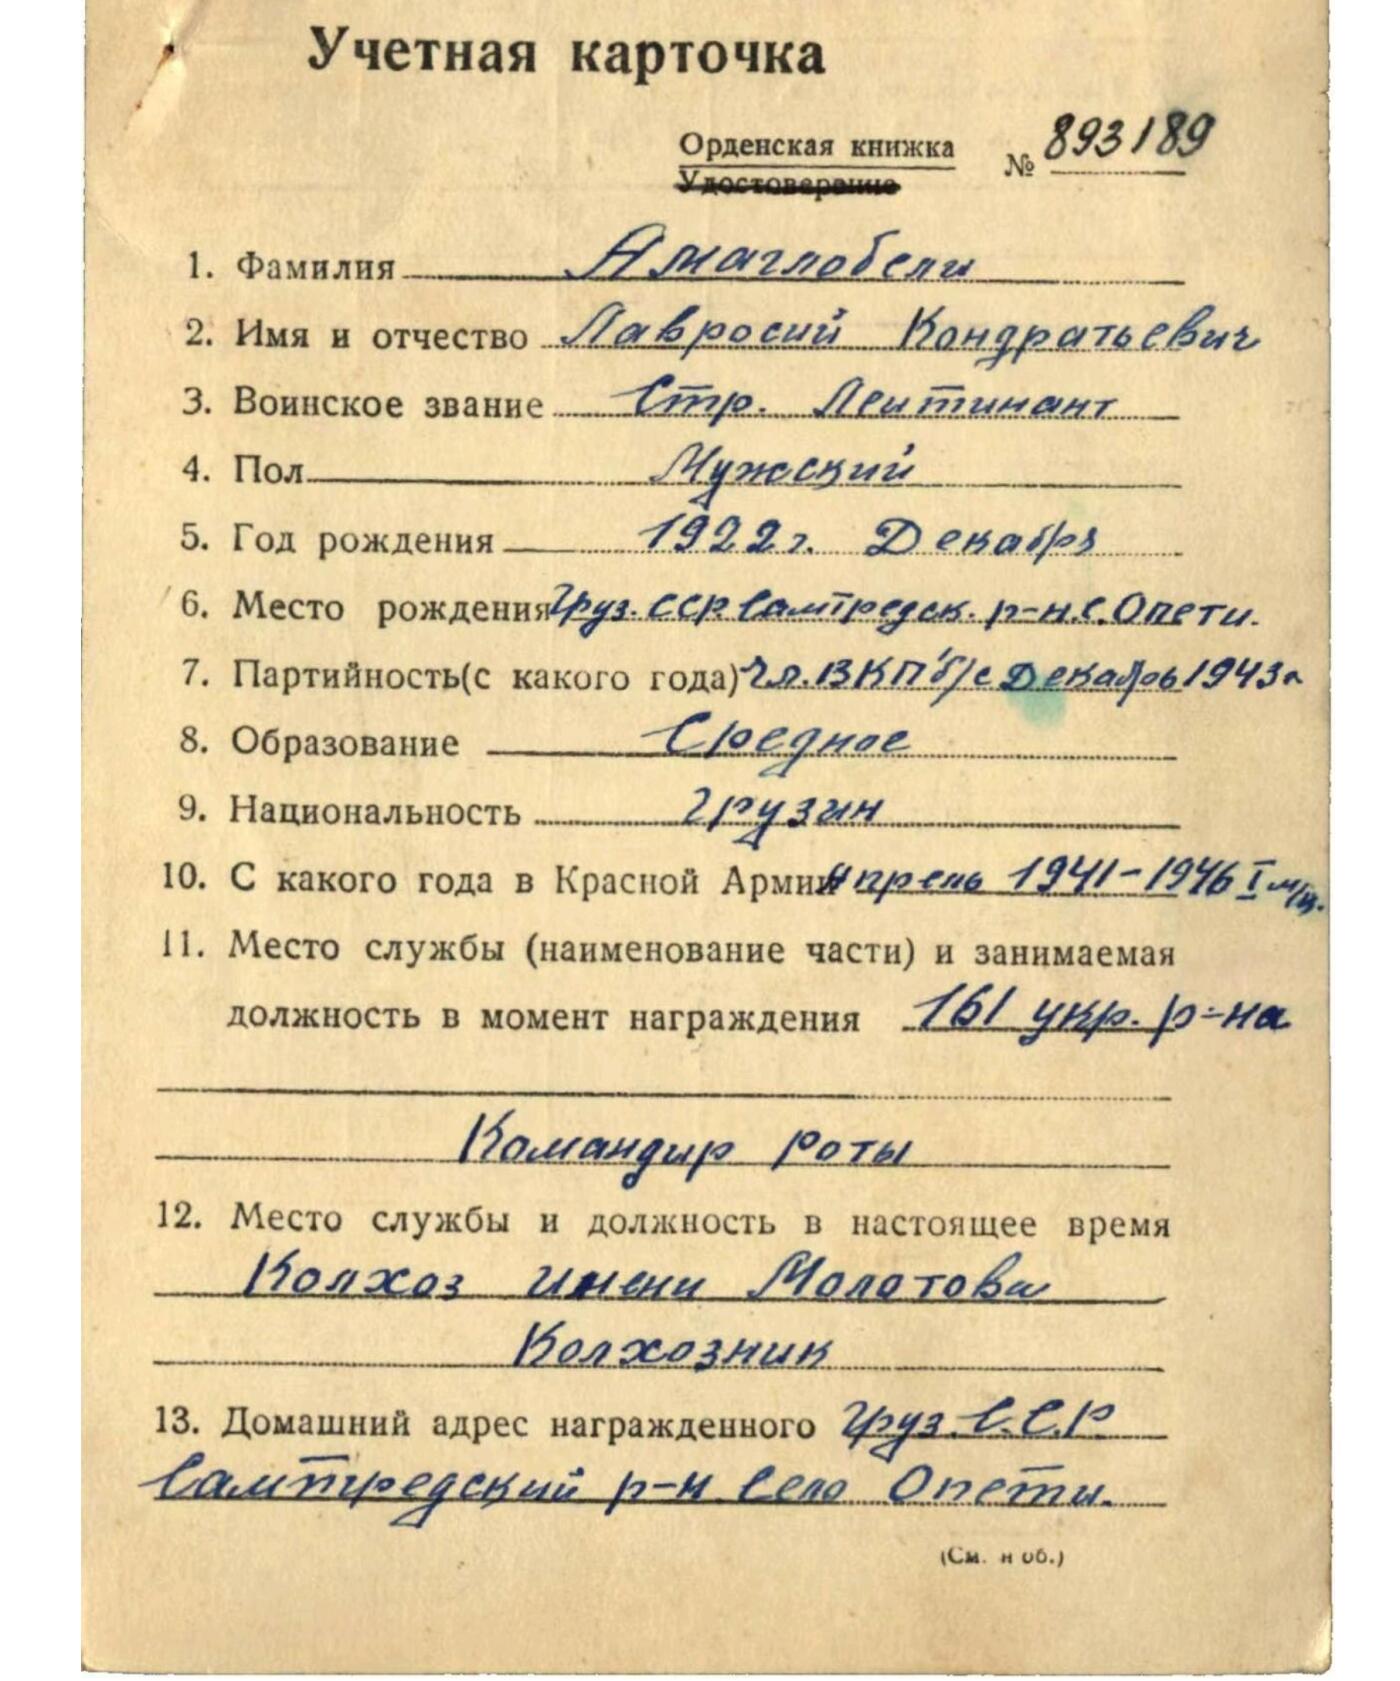 Учетная карточка
Орденская книжка № 893189
Удостоверение
1. Фамилия Амаглобели
2. Имя и отчество Лавросий Кондратьевич
3. Воинское звание Стр. Леитинант
4. Пол Мужский
5. Год рождения 1922 г. Декабря
6. Место рождения Груз. ССР Самтредск. р-н.С. Опети.
7. Партийность(с какого года) Чл. ВКП/б/ с Декабрь 1943 г
8. Образование Средное
9. Национальность Грузин
10. С какого года в Красной Армии Апрель 1941-1946 I м/ц.
11. Место службы (наименование части) и занимаемая
должность в момент награждения 161 укр. р-на
Командир роты
12. Место службы и должность в настоящее время
Колхоз имени Молотова
Колхозник
13. Домашний адрес награжденного Груз. С.С.Р
Самтредский р-н Село Опети.
(См. н об.)